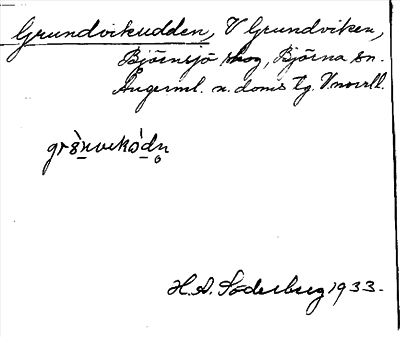 Grundvikudden, V Grundviken,
Björnsjö skog, Björna sn.
Ångerml. n. doms tg. V.norrl.
H.A. Söderberg 1933.